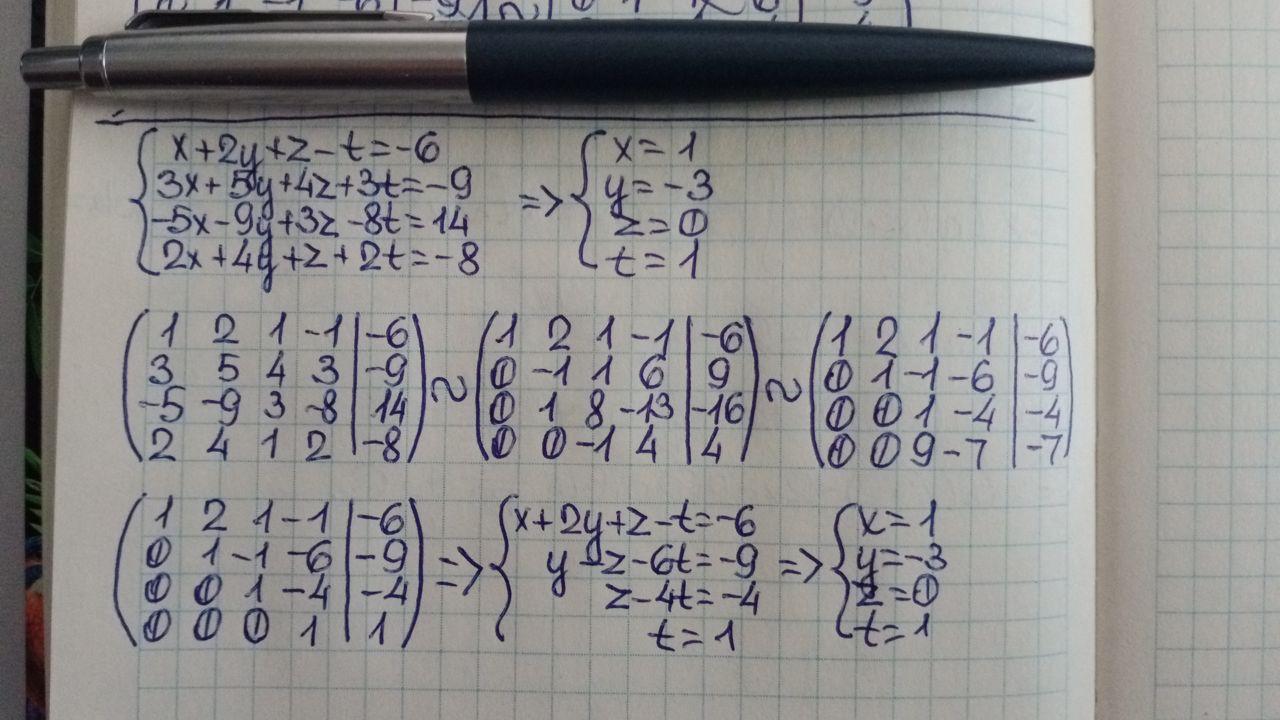 x+2y+z-t=-6
3x+5y+4z+3t=-9
-5x-9y+3z-8t=14
2x+4y+z+2t=-8
=> x=1
y=-3
z=0
t=1
1 2 1 -1 | -6
3 5 4 3 | -9
-5 -9 3 -8 | 14
2 4 1 2 | -8
~
1 2 1 -1 | -6
0 -1 1 6 | 9
0 1 8 -13 | -16
0 0 -1 4 | 4
~
1 2 1 -1 | -6
0 1 -1 -6 | -9
0 0 1 -4 | -4
0 0 9 -7 | -7
1 2 1 -1 | -6
0 1 -1 -6 | -9
0 0 1 -4 | -4
0 0 0 1 | 1
=> x+2y+z-t=-6
y-z-6t=-9
z-4t=-4
t=1
=> x=1
y=-3
z=0
t=1